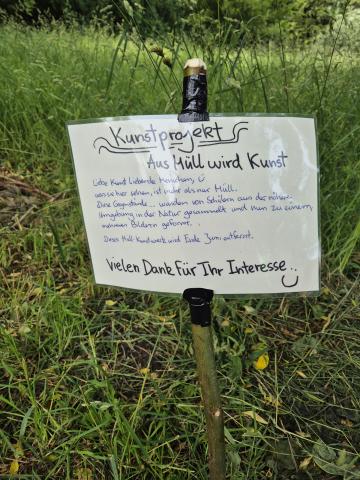 Kunstprojekt
Aus Müll wird Kunst
Liebe Kunst liebende Menschen, :)
was sie hier sehen, ist mehr als nur Müll.
Diese Gegenstände... wurden von Schülern aus der näheren
Umgebung in der Natur gesammelt und nun zu einem,
mehreren Bildern geformt.
Dieses Müll-Kunstwerk wird Ende Juni entfernt.
Vielen Dank für Ihr Interesse :)